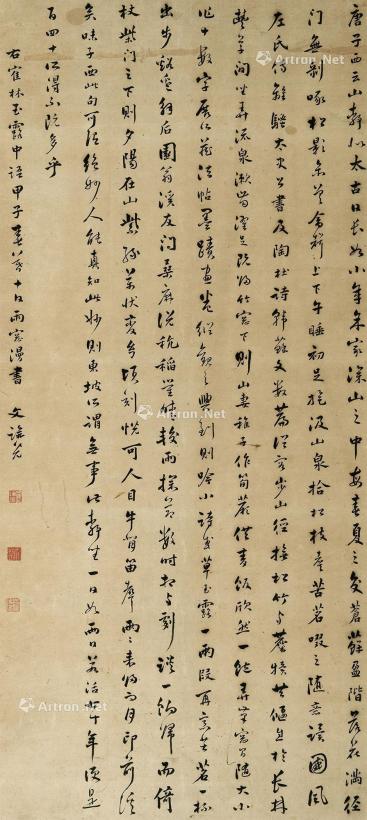 唐子西云山静似太古日长如小年余家深山之中每春夏之交苍藓盈阶落花满径
门无剥啄松影参差禽声上下午睡初足旋汲山泉拾松枝煮苦茗啜之随意读国风
左氏传离骚太史公书及陶杜诗韩苏文数篇从容步山径抚松竹与麛犊共偃息于长林
丰草间坐弄流泉漱齿濯足既归竹窗下则山妻稚子作笋蕨供麦饭欣然一饱弄笔窗间随大小
作十数字展所藏法帖墨迹画卷纵观之兴到则吟小诗或草玉露一两段再烹苦茗一杯
出步溪边邂逅园翁溪友问桑麻说秔稻量晴较雨探节数时相与剧谈一饷归而倚
杖柴门之下则夕阳在山紫绿万状变幻顷刻恍可人目牛背笛声两两来归而月印前溪
矣味子西此句可谓绝妙人能真知此妙则东坡所谓无事此静坐一日如两日若活七十年便是
百四十所得不既多乎
右鹤林玉露中语甲子春暮十日雨窗漫书
Artron.net
Artron.net
Artron.net
Artron.net
Artron.net
Artron.net